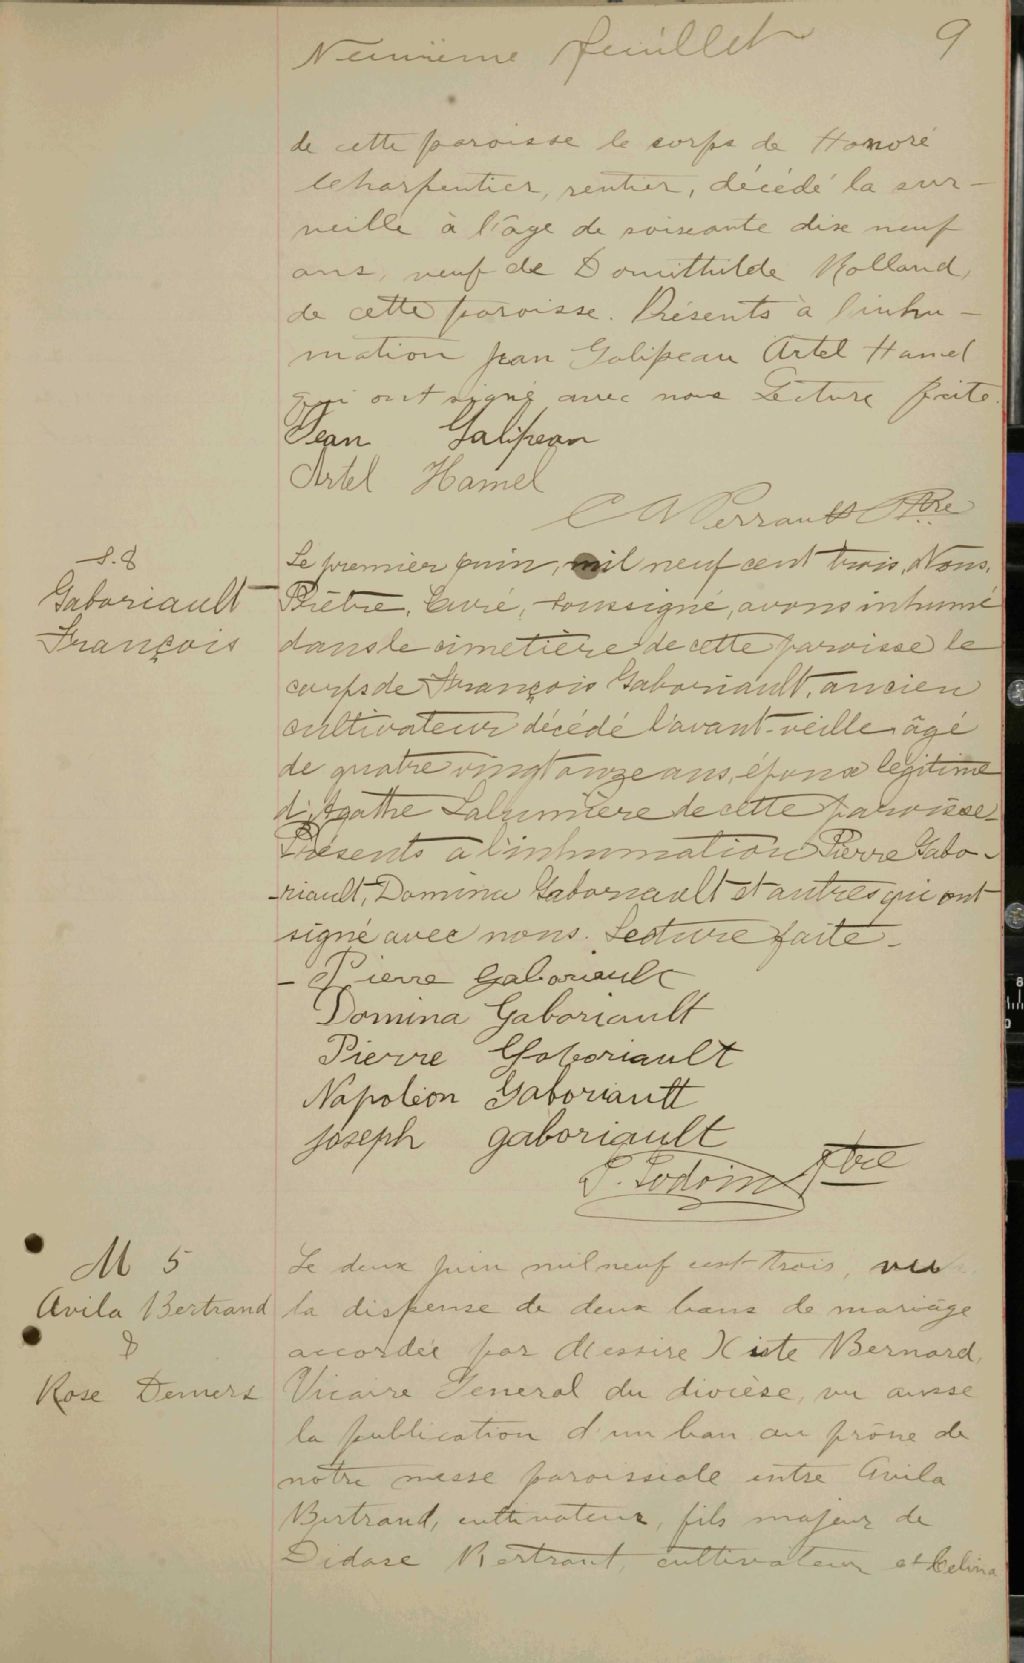 Neuvième feuillet 9
de cette paroisse le corps de Honoré
Charpentier, rentier, décédé la sur-
veille à l'âge de soixante dix neuf
ans, veuf de Domithilde Rolland,
de cette paroisse. Présents à l'inhu-
mation Jean Galipeau Artel Hamel
qui ont signé avec nous Lecture faite.
Jean Galipeau
Artel Hamel
C A Perrault Ptre
S. 8
Gaboriault
François
Le premier juin, mil neuf cent trois, Nous,
Prêtre, Curé, soussigné, avons inhumé
dans le cimetière de cette paroisse le
corps de François Gaboriault, ancien
cultivateur décédé l'avant-veille âgé
de quatre vingt onze ans, époux légitime
d'Agathe Lalumière de cette paroisse-
Présents à l'inhumation Pierre Gabo-
-riault, Domina Gaboriault et autres qui ont
signé avec nous. Lecture faite-
- Pierre Gaboriault
Domina Gaboriault
Pierre Gaboriault
Napoléon Gaboriault
Joseph gaboriault
P. Lodoin Ptre
M 5
Avila Bertrand
&
Rose Demers
Le deux juin mil neuf cent trois, vu
la dispense de deux bans de mariage
accordée par Messire Xiste Bernard,
Vicaire General du diocèse, vu ausse
la publication d'un ban au prône de
notre messe paroissiale entre Avila
Bertrand, cultivateur, fils majeur de
Didase Bertrant, cultivateur et Celina